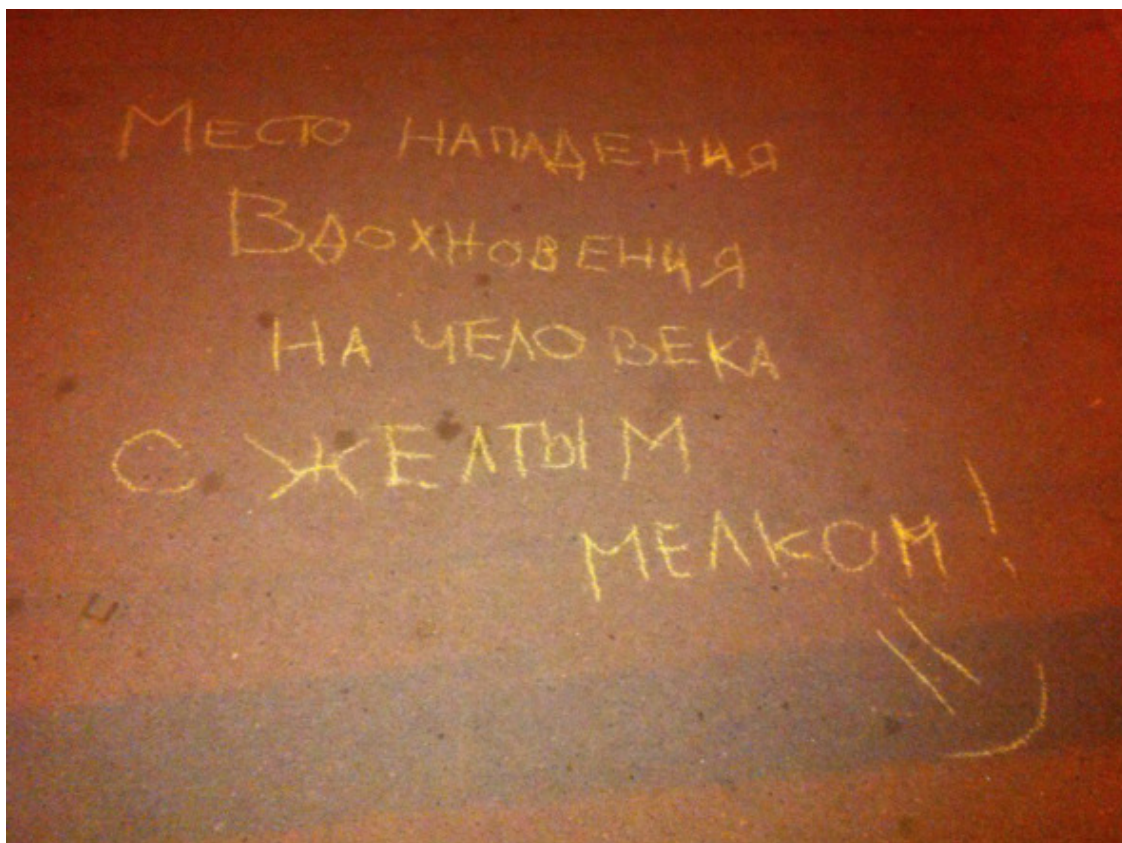 Место нападения
Вдохновения
на человека
с желтым
мелком!
=)